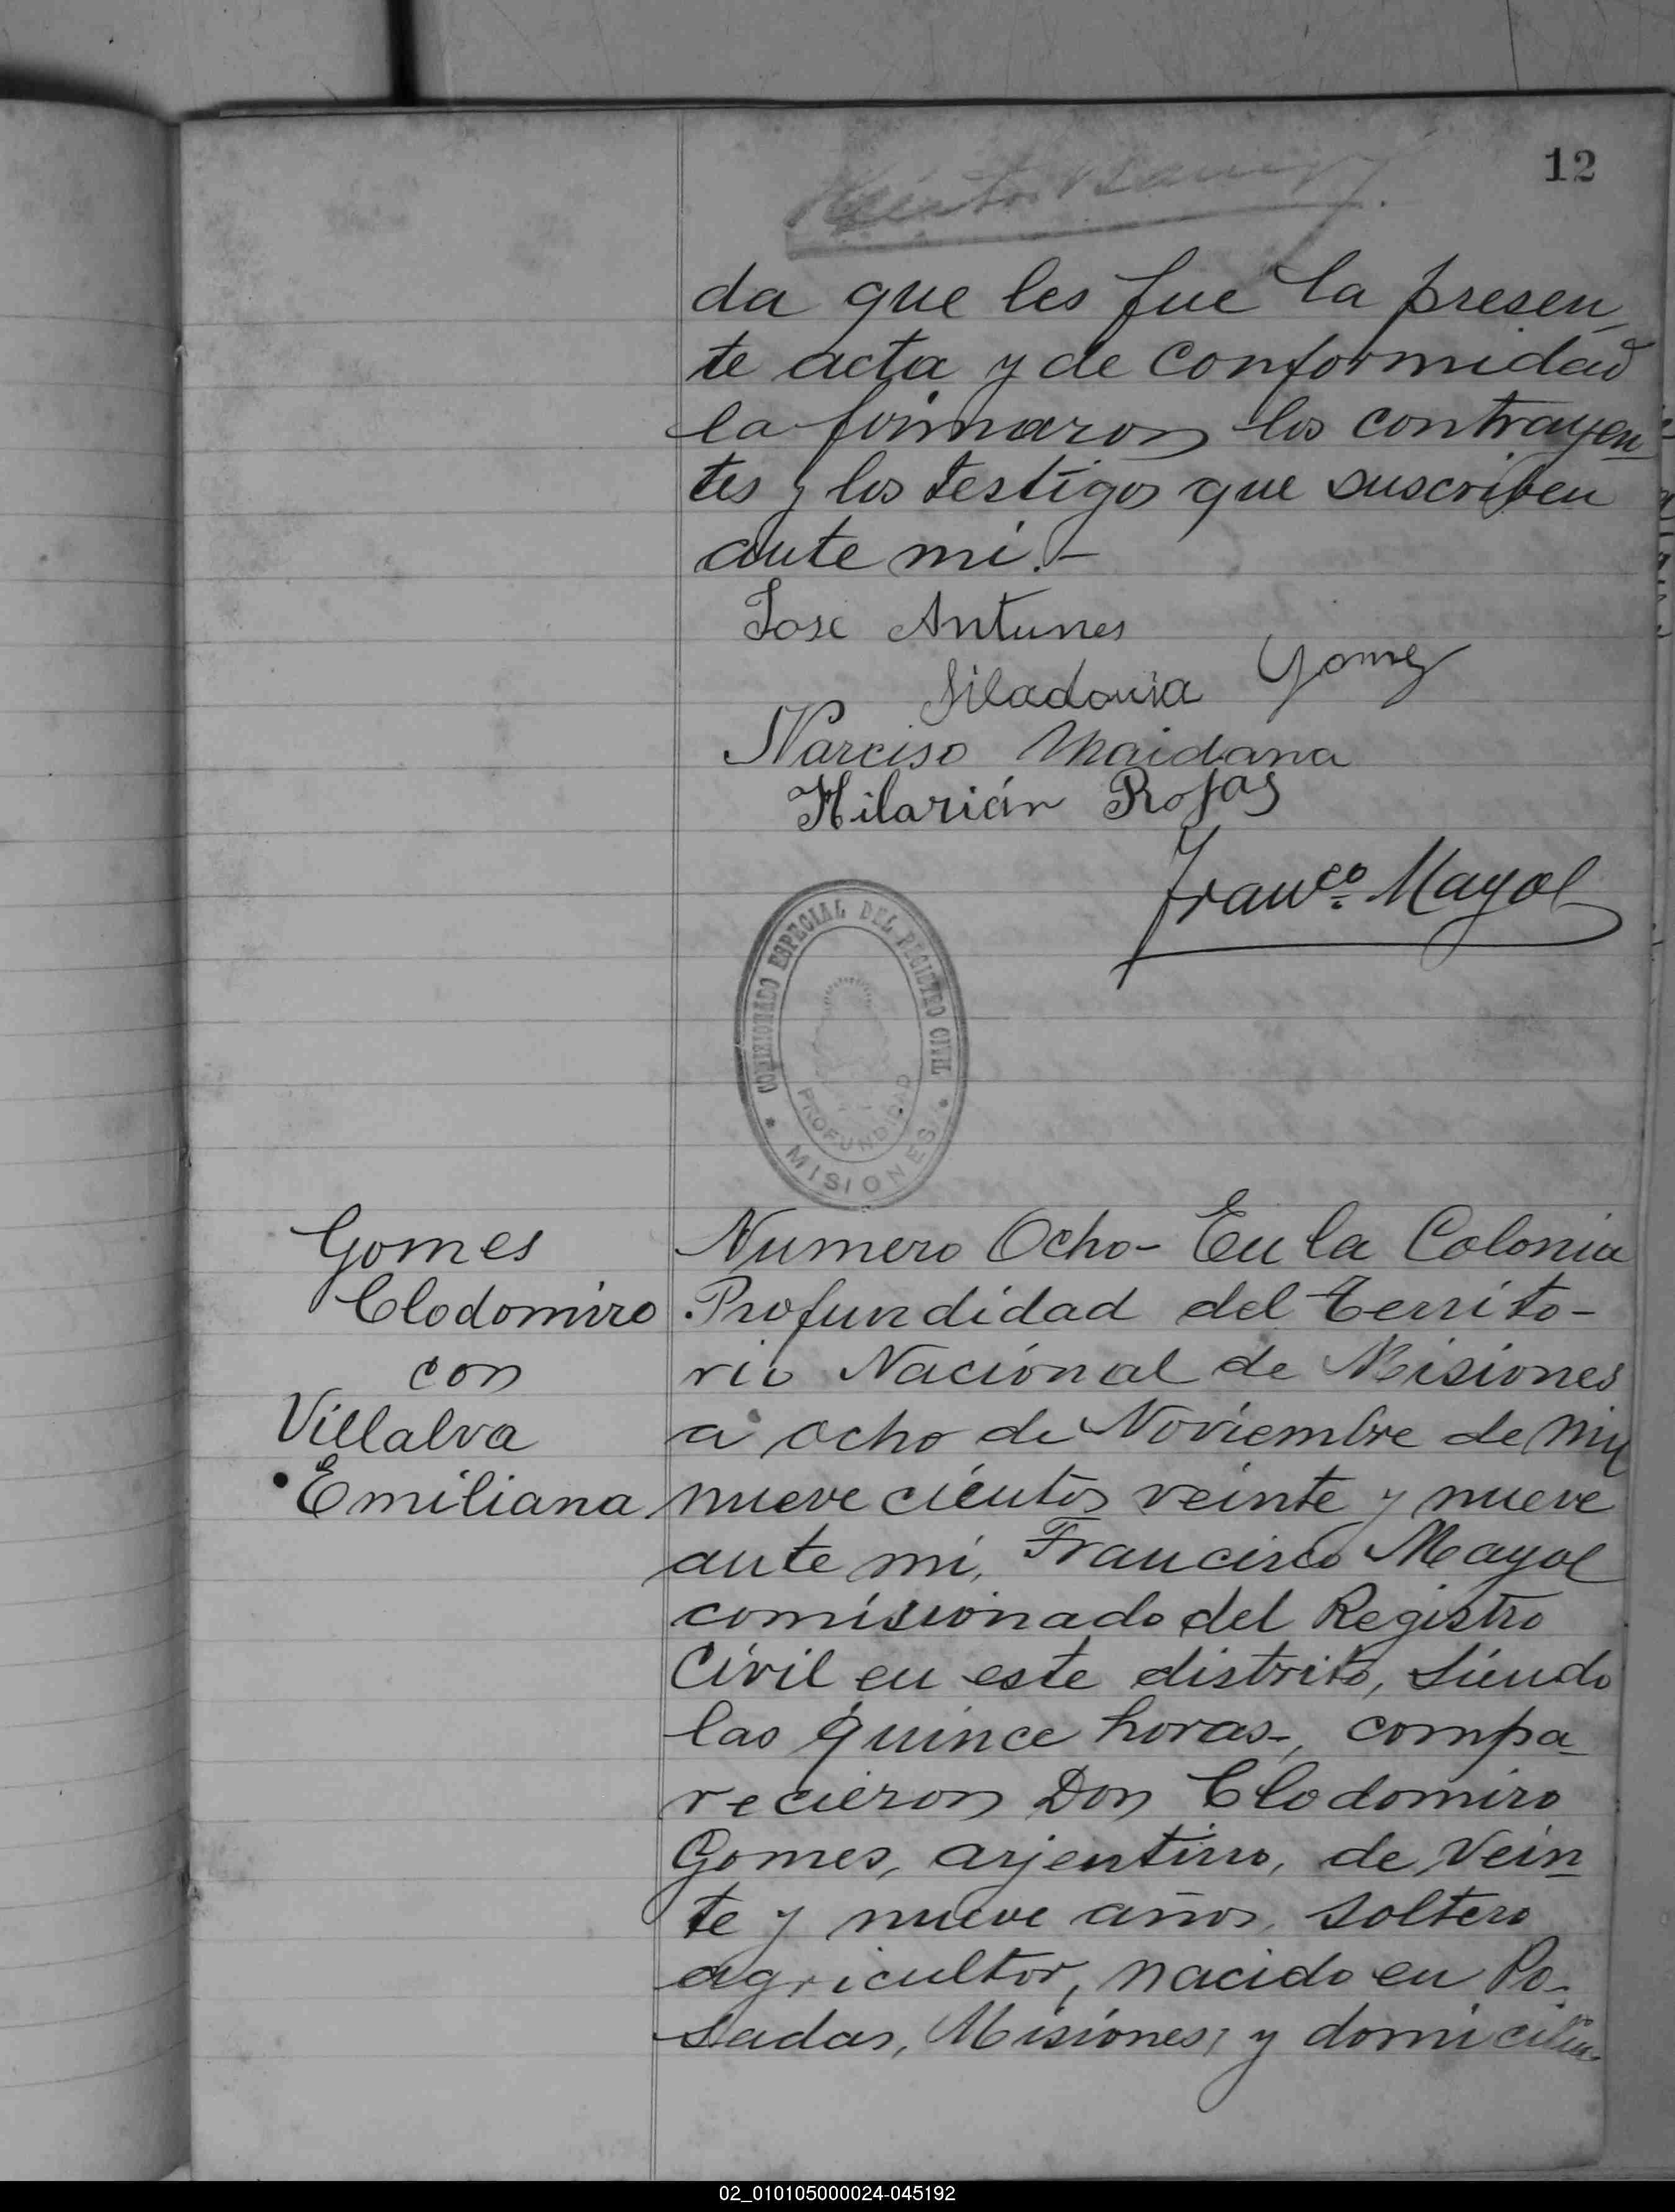 12
da que les fue la presen
te acta y de conformidad
la firmaron los contrayen
tes y los testigos que suscriben
ante mi.-
Jose Antunes
Filadonia Gomez
Narciso Maidana
Hilarián Rojas
Franco. Mayol
COMISIONADO ESPECIAL DEL REGISTRO CIVIL
PROFUNDIDAD
* MISIONES *
Gomes
Clodomiro
con
Villalva
Emiliana
Numero Ocho- En la Colonia
Profundidad del Territo-
rio Nacional de Misiones
a ocho de Noviembre de mil
nueve cientos veinte y nueve
ante mi, Francisco Mayol
comisionado del Registro
Civil en este distrito, siendo
las quince horas-, compa-
recieron Don Clodomiro
Gomes, arjentino, de vein
te y nueve años, soltero
agricultor, nacido en Po-
sadas, Misiones, y domicilia-
02_010105000024-045192